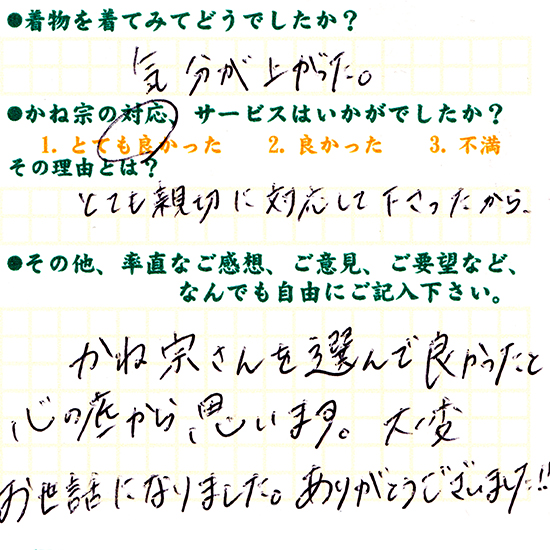 ●着物を着てみてどうでしたか？
気分が上がった。
●かね宗の対応、サービスはいかがでしたか？
1. とても良かった　2. 良かった　3. 不満
その理由とは？
とても親切に対応して下さったから、
●その他、率直なご感想、ご意見、ご要望など、
なんでも自由にご記入下さい。
かね宗さんを選んで良かったと
心の底から思います。大変
お世話になりました。ありがとうございました!!